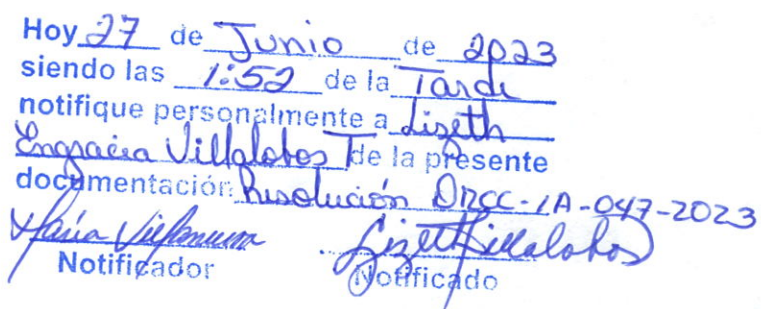 Hoy 27 de Junio de 2023
siendo las 1:52 de la Tarde
notifique personalmente a Lizeth
Engracia Villalobos T de la presente
documentación: Resolución DRCC-IA-047-2023
María
Lizeth Villalobos
Notificador Notificado